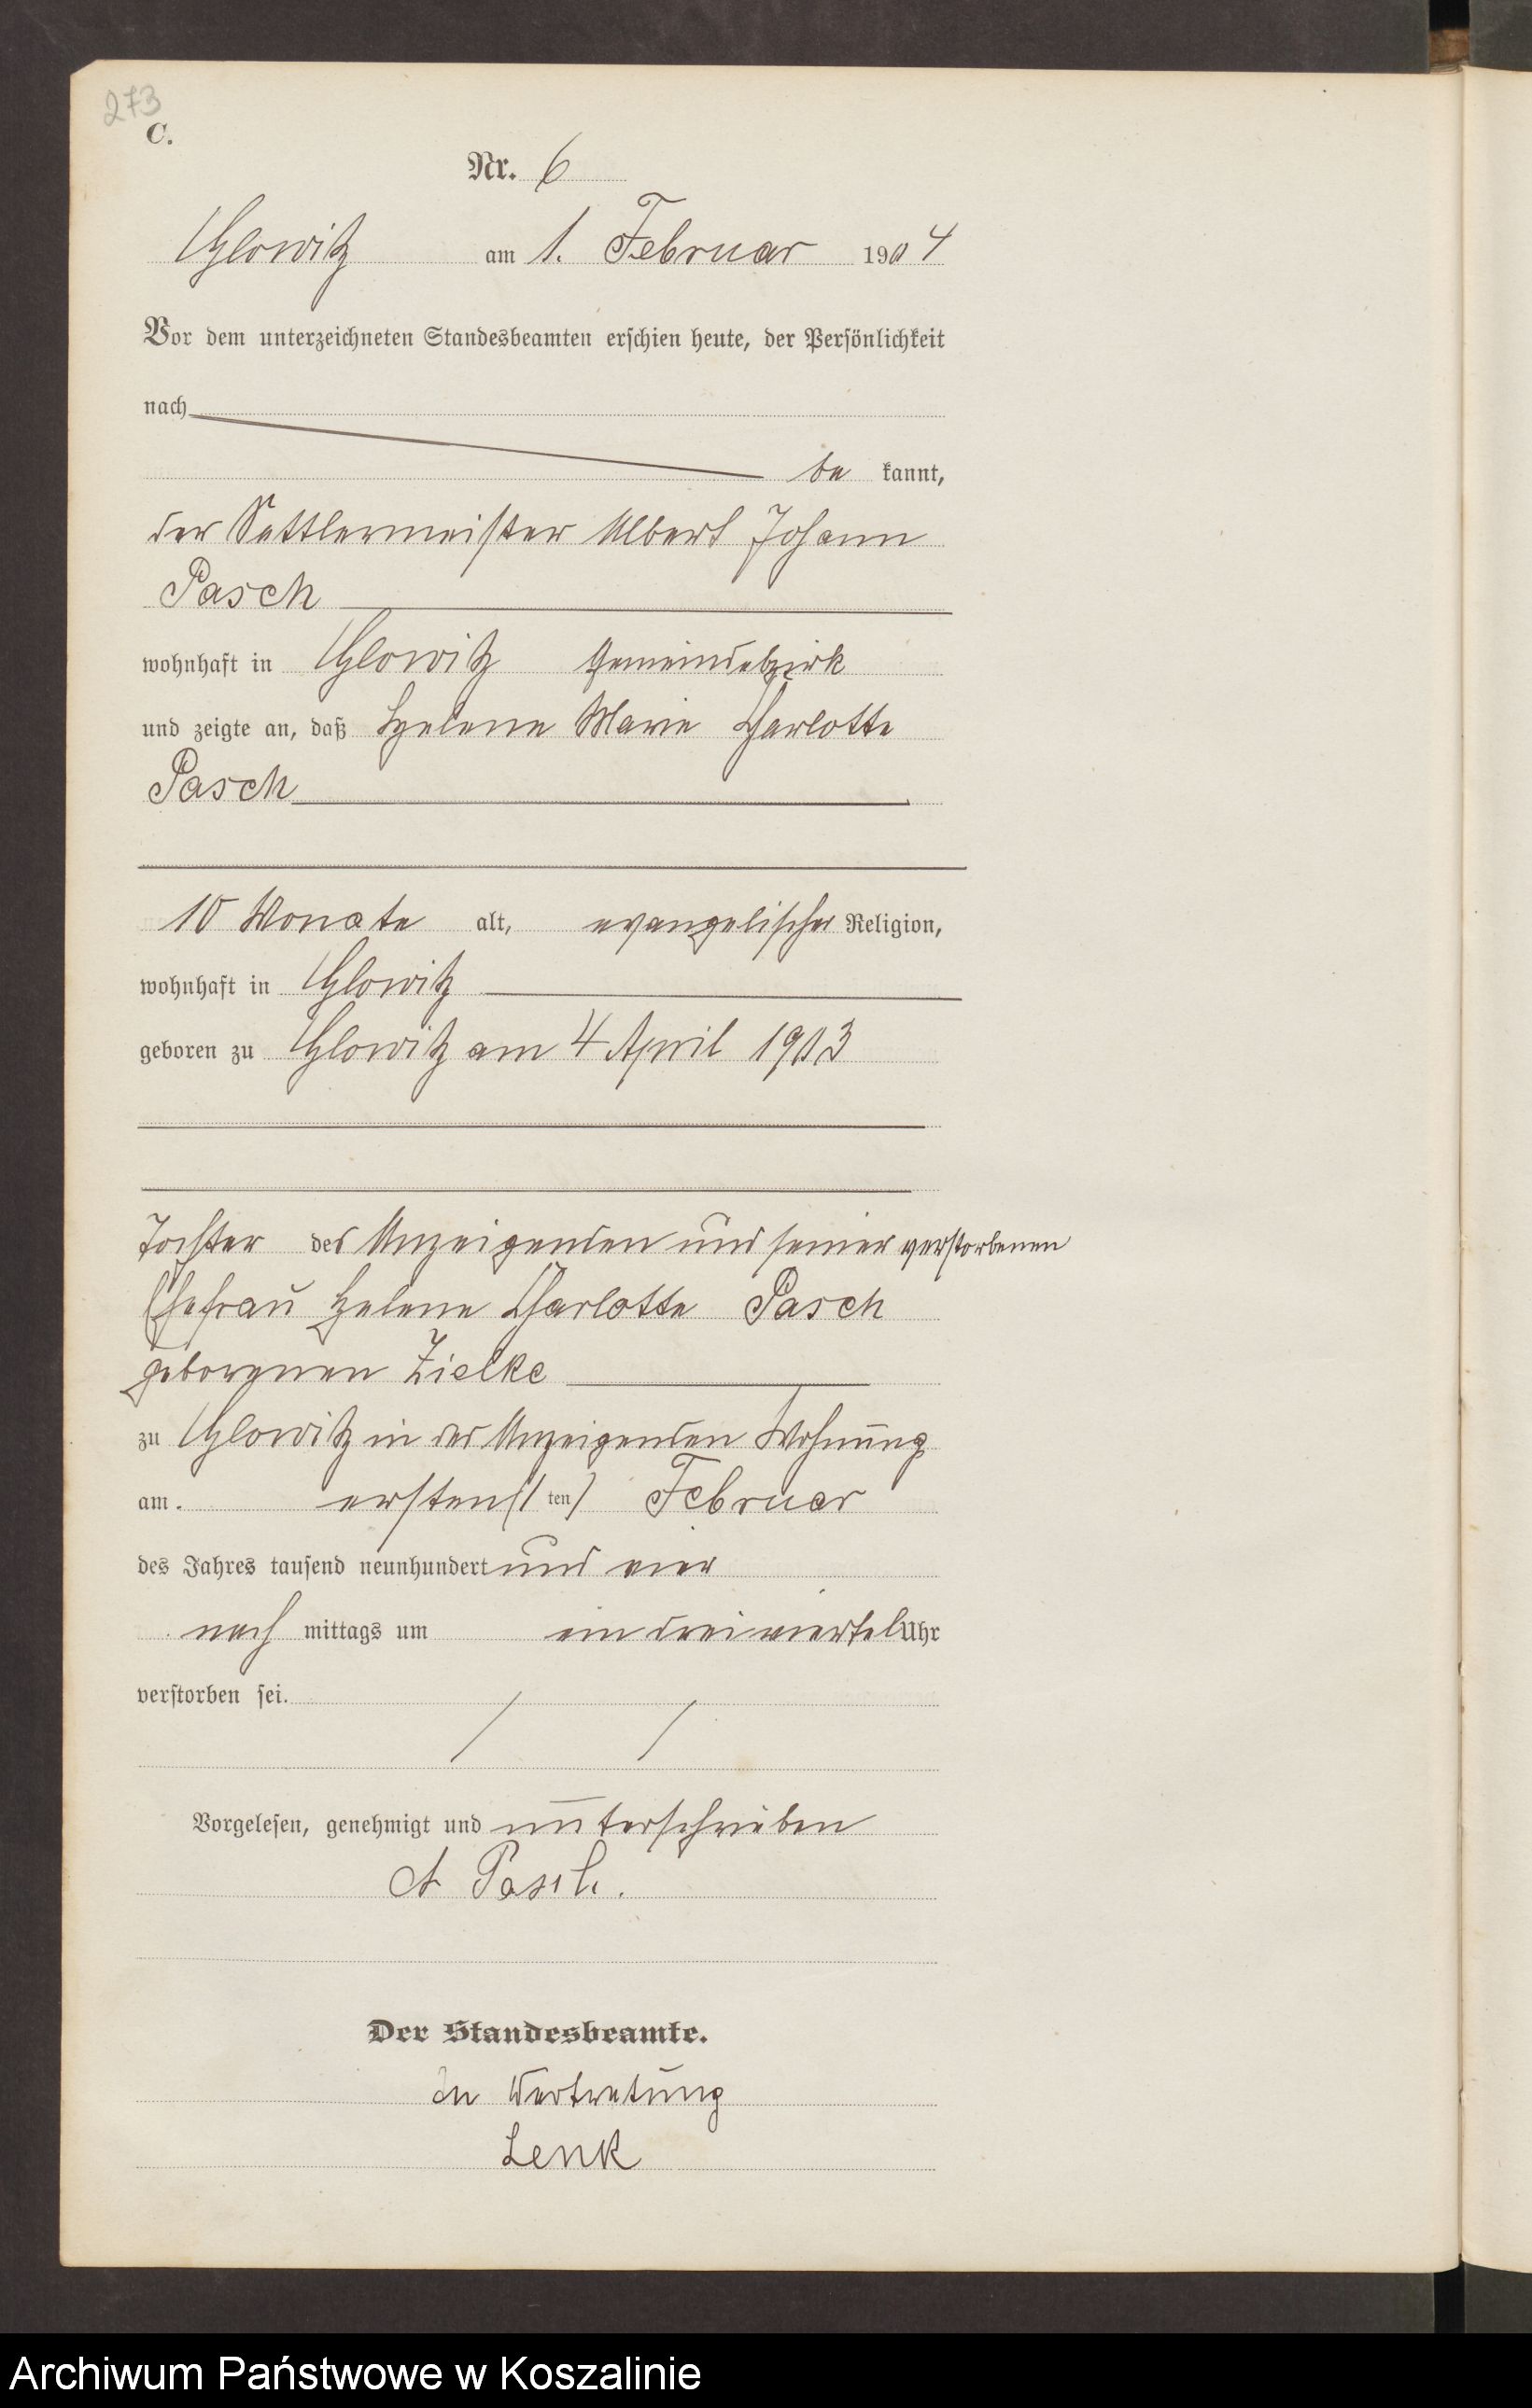 273
C.
Nr. 6
Glowitz am 1. Februar 1904
Vor dem unterzeichneten Standesbeamten erschien heute, der Persönlichkeit
nach
be kannt,
der Sattlermeister Albert Johann
Pasch
wohnhaft in Glowitz Gemeindebezirk
und zeigte an, daß Helene Marie Charlotte
Pasch
10 Monate alt, evangelischer Religion,
wohnhaft in Glowitz
geboren zu Glowitz am 4 April 1903
Tochter des Anzeigenden und seiner verstorbenen
Ehefrau Helene Charlotte Pasch
geborenen Zielke
zu Glowitz in des Anzeigenden Wohnung
am ersten (1 ten) Februar
des Jahres tausend neunhundert und vier
nach mittags um ein dreiviertel Uhr
verstorben sei.
Vorgelesen, genehmigt und unterschrieben
A Pasch.
Der Standesbeamte.
In Vertretung
Lenk
Archiwum Państwowe w Koszalinie